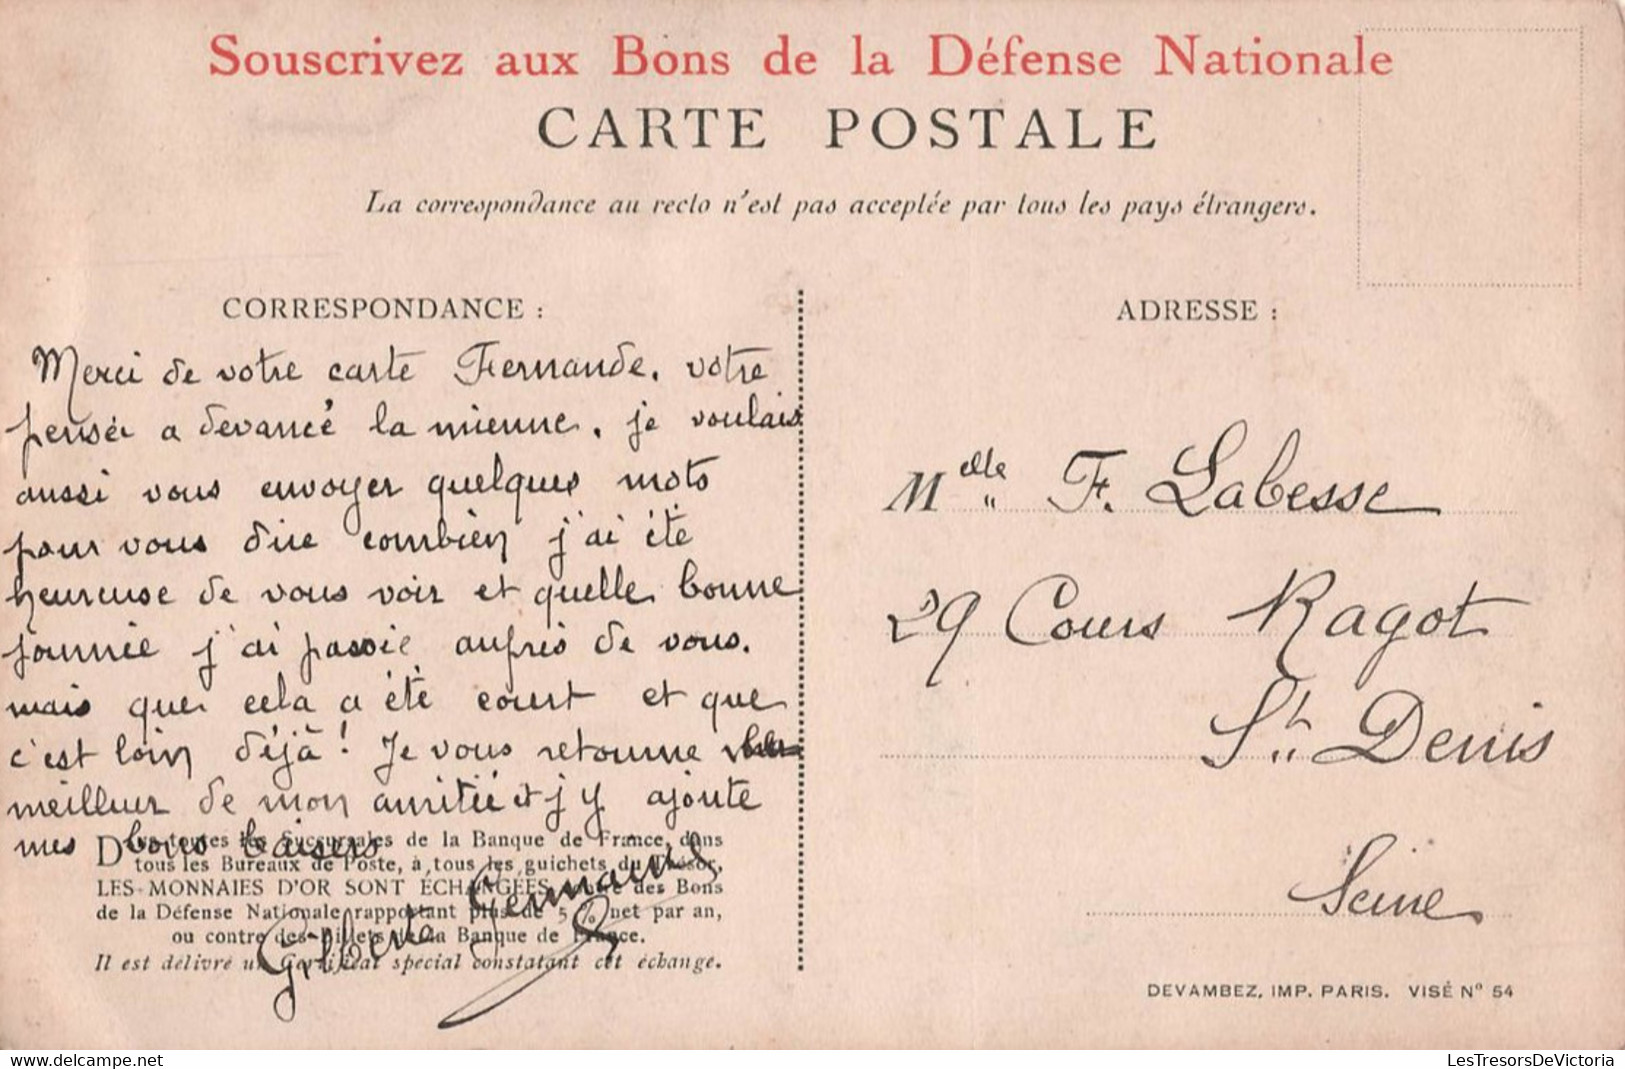 Souscrivez aux Bons de la Défense Nationale
CARTE POSTALE
La correspondance au recto n'est pas acceptée par tous les pays étrangers.
CORRESPONDANCE :
Merci de votre carte Fernande. votre
pensée a devancé la mienne. je voulais
aussi vous envoyer quelques mots
pour vous dire combien j'ai été
heureuse de vous voir et quelle bonne
journée j'ai passée auprès de vous.
mais que cela a été court et que
c'est loin déjà ! Je vous retourne
meilleur de mon amitié et j'y ajoute
mes bons baisers
Germaine
Dans toutes les Succursales de la Banque de France, dans
tous les Bureaux de Poste, à tous les guichets du Trésor,
LES MONNAIES D'OR SONT ÉCHANGÉES contre des Bons
de la Défense Nationale rapportant plus de 5 % net par an,
ou contre des Billets de la Banque de France.
Il est délivré un Certificat spécial constatant cet échange.
ADRESSE :
Melle F. Labesse
29 Cours Ragot
St Denis
Seine
DEVAMBEZ, IMP. PARIS. VISÉ N° 54
LesTresorsDeVictoria